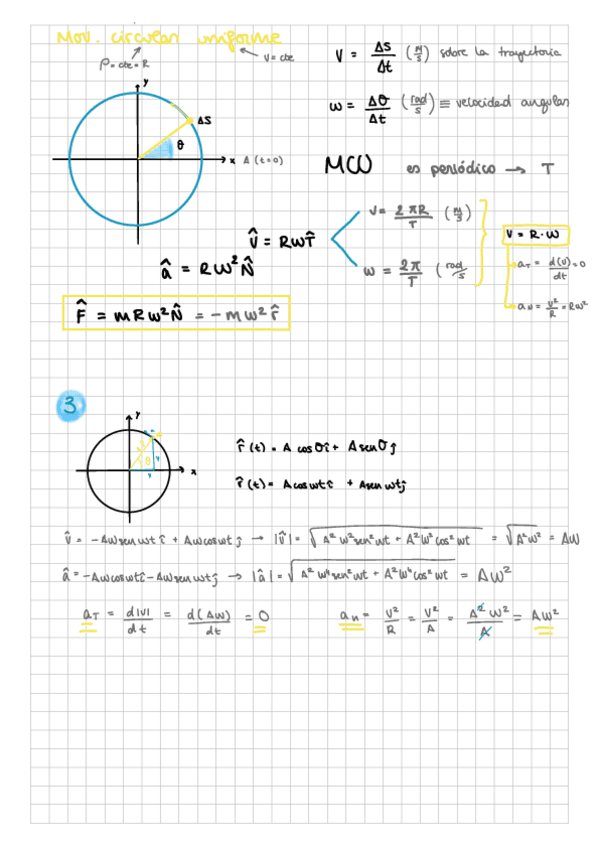 Mov. circular uniforme
ρ = cte = R
v = cte
V = Δs/Δt (m/s) sobre la trayectoria
y
Δs
θ
x A (t=0)
ω = Δθ/Δt (rad/s) ≡ velocidad angular
MCU es periódico → T
v = 2πR/T (m/s)
V = R·ω
v̂ = RωT̂
â = Rω²N̂
ω = 2π/T (rad/s
a_T = d(v)/dt = 0
a_N = v²/R = Rω²
F̂ = mRω²N̂ = -mω²r̂
3
y
θ
x
r̂(t) = A cosθî + A senθĵ
r̂(t) = A cosωtî + A senωtĵ
v̂ = -Aωsenωt î + Aωcosωt ĵ → |v̂| = √A²ω²sen²ωt + A²ω²cos²ωt = √A²ω² = Aω
â = -Aωcosωtî - Aωsenωtĵ → |â| = √A²ω⁴sen²ωt + A²ω⁴cos²ωt = Aω²
a_T = d|v|/dt = d(Aω)/dt = 0
a_n = v²/R = v²/A = A²ω²/A = Aω²